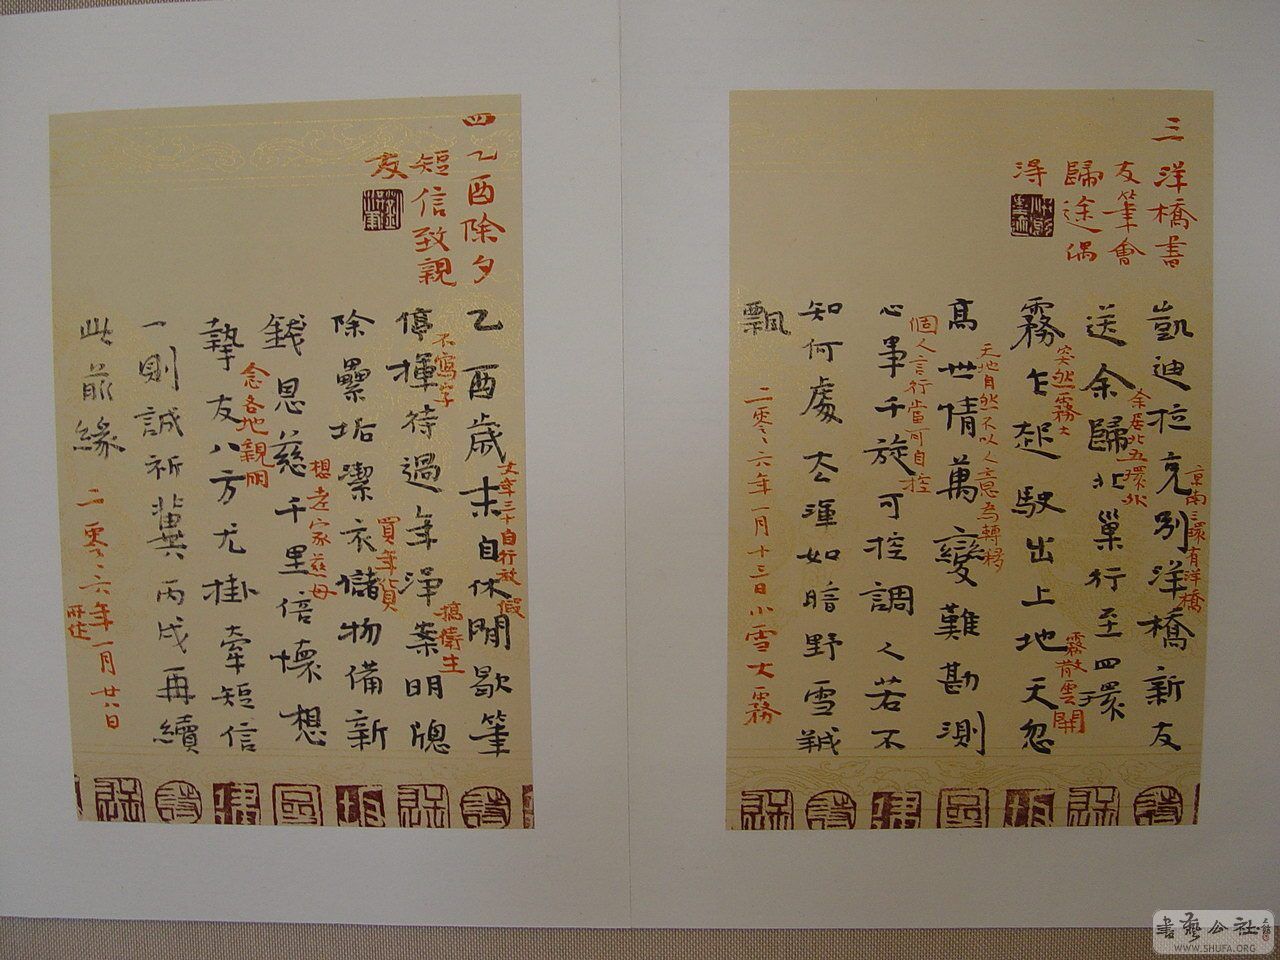 三洋橋書
友筆會
歸途偶
得
凱迪拉克別洋橋新友
京南三環有洋橋
送余歸北巢行至四環
余居北五環外
霧乍起駛出上地天忽
突然霧大
霧散雲開
高世情萬變難勘測
天地自然不以人意為轉移
心事千旋可控調人若不
個人言行當可自控
知何處去渾如暗野雪
飄
二零零六年一月十三日小雪大霧
四乙酉除夕
短信致親
友
乙酉歲末自休閒歇筆
丈年三十自行放假
停揮待過年淨案明牕
不寫字
搞衛生
除壘垢潔衣儲物備新
買年貨
錢恩慈千里倍懷想
想老家慈母
摯友八方尤掛牽短信
念各地親朋
一則誠祈冀丙戌再續
此前緣
二零零六年一月廿八日
所作
書藝公社
WWW.SHUFA.ORG